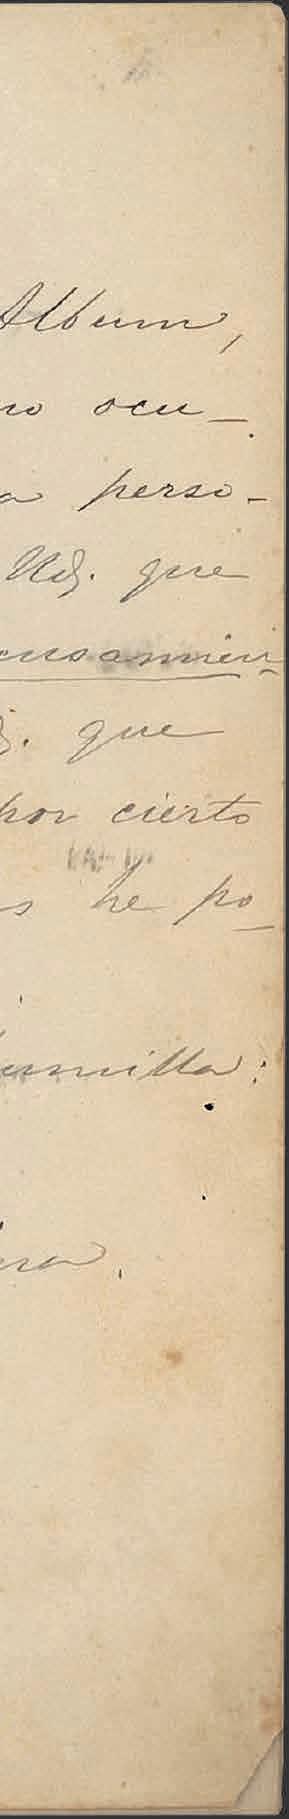 Album,
no ocu-
a perso-
Ud. que
ensamien-
d. que
por cierto
s he po-
umilla:
era.